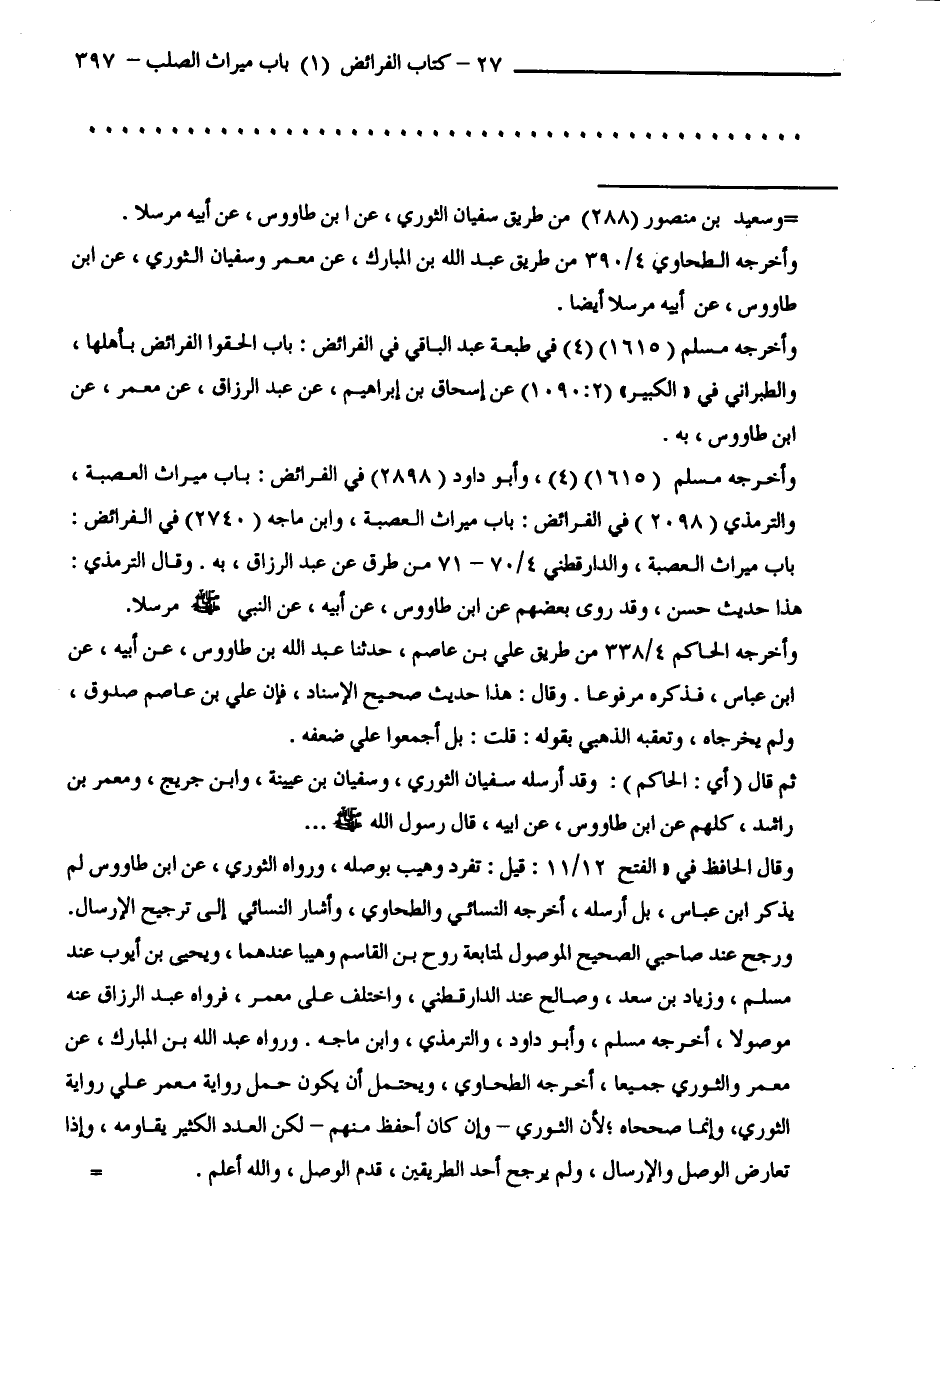 ٢٧ – كتاب الفرائض (١) باب ميراث الصلب – ٣٩٧
=وسعيد بن منصور (٢٨٨) من طريق سفيان الثوري ، عن ا بن طاووس ، عن أبيه مرسلا .
وأخرجه الطحاوي ٣٩٠/٤ من طريق عبد الله بن المبارك ، عن معمر وسفيان الثوري ، عن ابن
طاووس ، عن أبيه مرسلا أيضا .
وأخرجه مسلم (١٦١٥) (٤) في طبعة عبد الباقي في الفرائض : باب الحقوا الفرائض بأهلها ،
والطبراني في « الكبير» (١٠٩٠:٢) عن إسحاق بن إبراهيم ، عن عبد الرزاق ، عن معمر ، عن
ابن طاووس ، به .
وأخرجه مسلم (١٦١٥) (٤) ، وأبو داود (٢٨٩٨) في الفرائض : باب ميراث العصبة ،
والترمذي (٢٠٩٨) في الفرائض : باب ميراث العصبة ، وابن ماجه (٢٧٤٠) في الفرائض :
باب ميراث العصبة ، والدارقطني ٧٠/٤ – ٧١ من طرق عن عبد الرزاق ، به . وقال الترمذي :
هذا حديث حسن ، وقد روى بعضهم عن ابن طاووس ، عن أبيه ، عن النبي ﷺ مرسلا.
وأخرجه الحاكم ٣٣٨/٤ من طريق علي بن عاصم ، حدثنا عبد الله بن طاووس ، عن أبيه ، عن
ابن عباس ، فذكره مرفوعا . وقال : هذا حديث صحيح الإسناد ، فإن علي بن عاصم صدوق ،
ولم يخرجاه ، وتعقبه الذهبي بقوله : قلت : بل أجمعوا علي ضعفه .
ثم قال (أي : الحاكم) : وقد أرسله سفيان الثوري ، وسفيان بن عيينة ، وابن جريج ، ومعمر بن
راشد ، كلهم عن ابن طاووس ، عن ابيه ، قال رسول الله ﷺ ...
وقال الحافظ في « الفتح ١١/١٢ : قيل : تفرد وهيب بوصله ، ورواه الثوري ، عن ابن طاووس لم
يذكر ابن عباس ، بل أرسله ، أخرجه النسائي والطحاوي ، وأشار النسائي إلى ترجيح الإرسال.
ورجح عند صاحبي الصحيح الموصول لمتابعة روح بن القاسم وهيبا عندهما ، ويحيى بن أيوب عند
مسلم ، وزياد بن سعد ، وصالح عند الدارقطني ، واختلف على معمر ، فرواه عبد الرزاق عنه
موصولا ، أخرجه مسلم ، وأبو داود ، والترمذي ، وابن ماجه . ورواه عبد الله بن المبارك ، عن
معمر والثوري جميعا ، أخرجه الطحاوي ، ويحتمل أن يكون حمل رواية معمر علي رواية
الثوري، وإنما صححاه ؛لأن الثوري – وإن كان أحفظ منهم – لكن العدد الكثير يقاومه ، وإذا
تعارض الوصل والإرسال ، ولم يرجح أحد الطريقين ، قدم الوصل ، والله أعلم . =